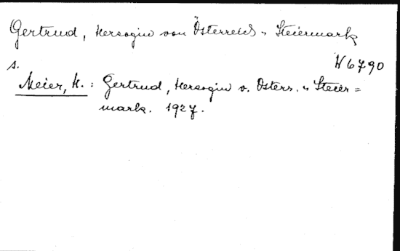 Gertrud, Herzogin von Österreich u. Steiermark
W 6790
s.
Meier, H.: Gertrud, Herzogin v. Österr. u. Steier=
mark. 1927.